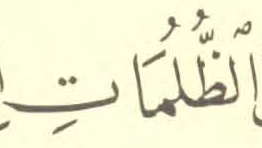 ٱلظُّلُمَاتِ